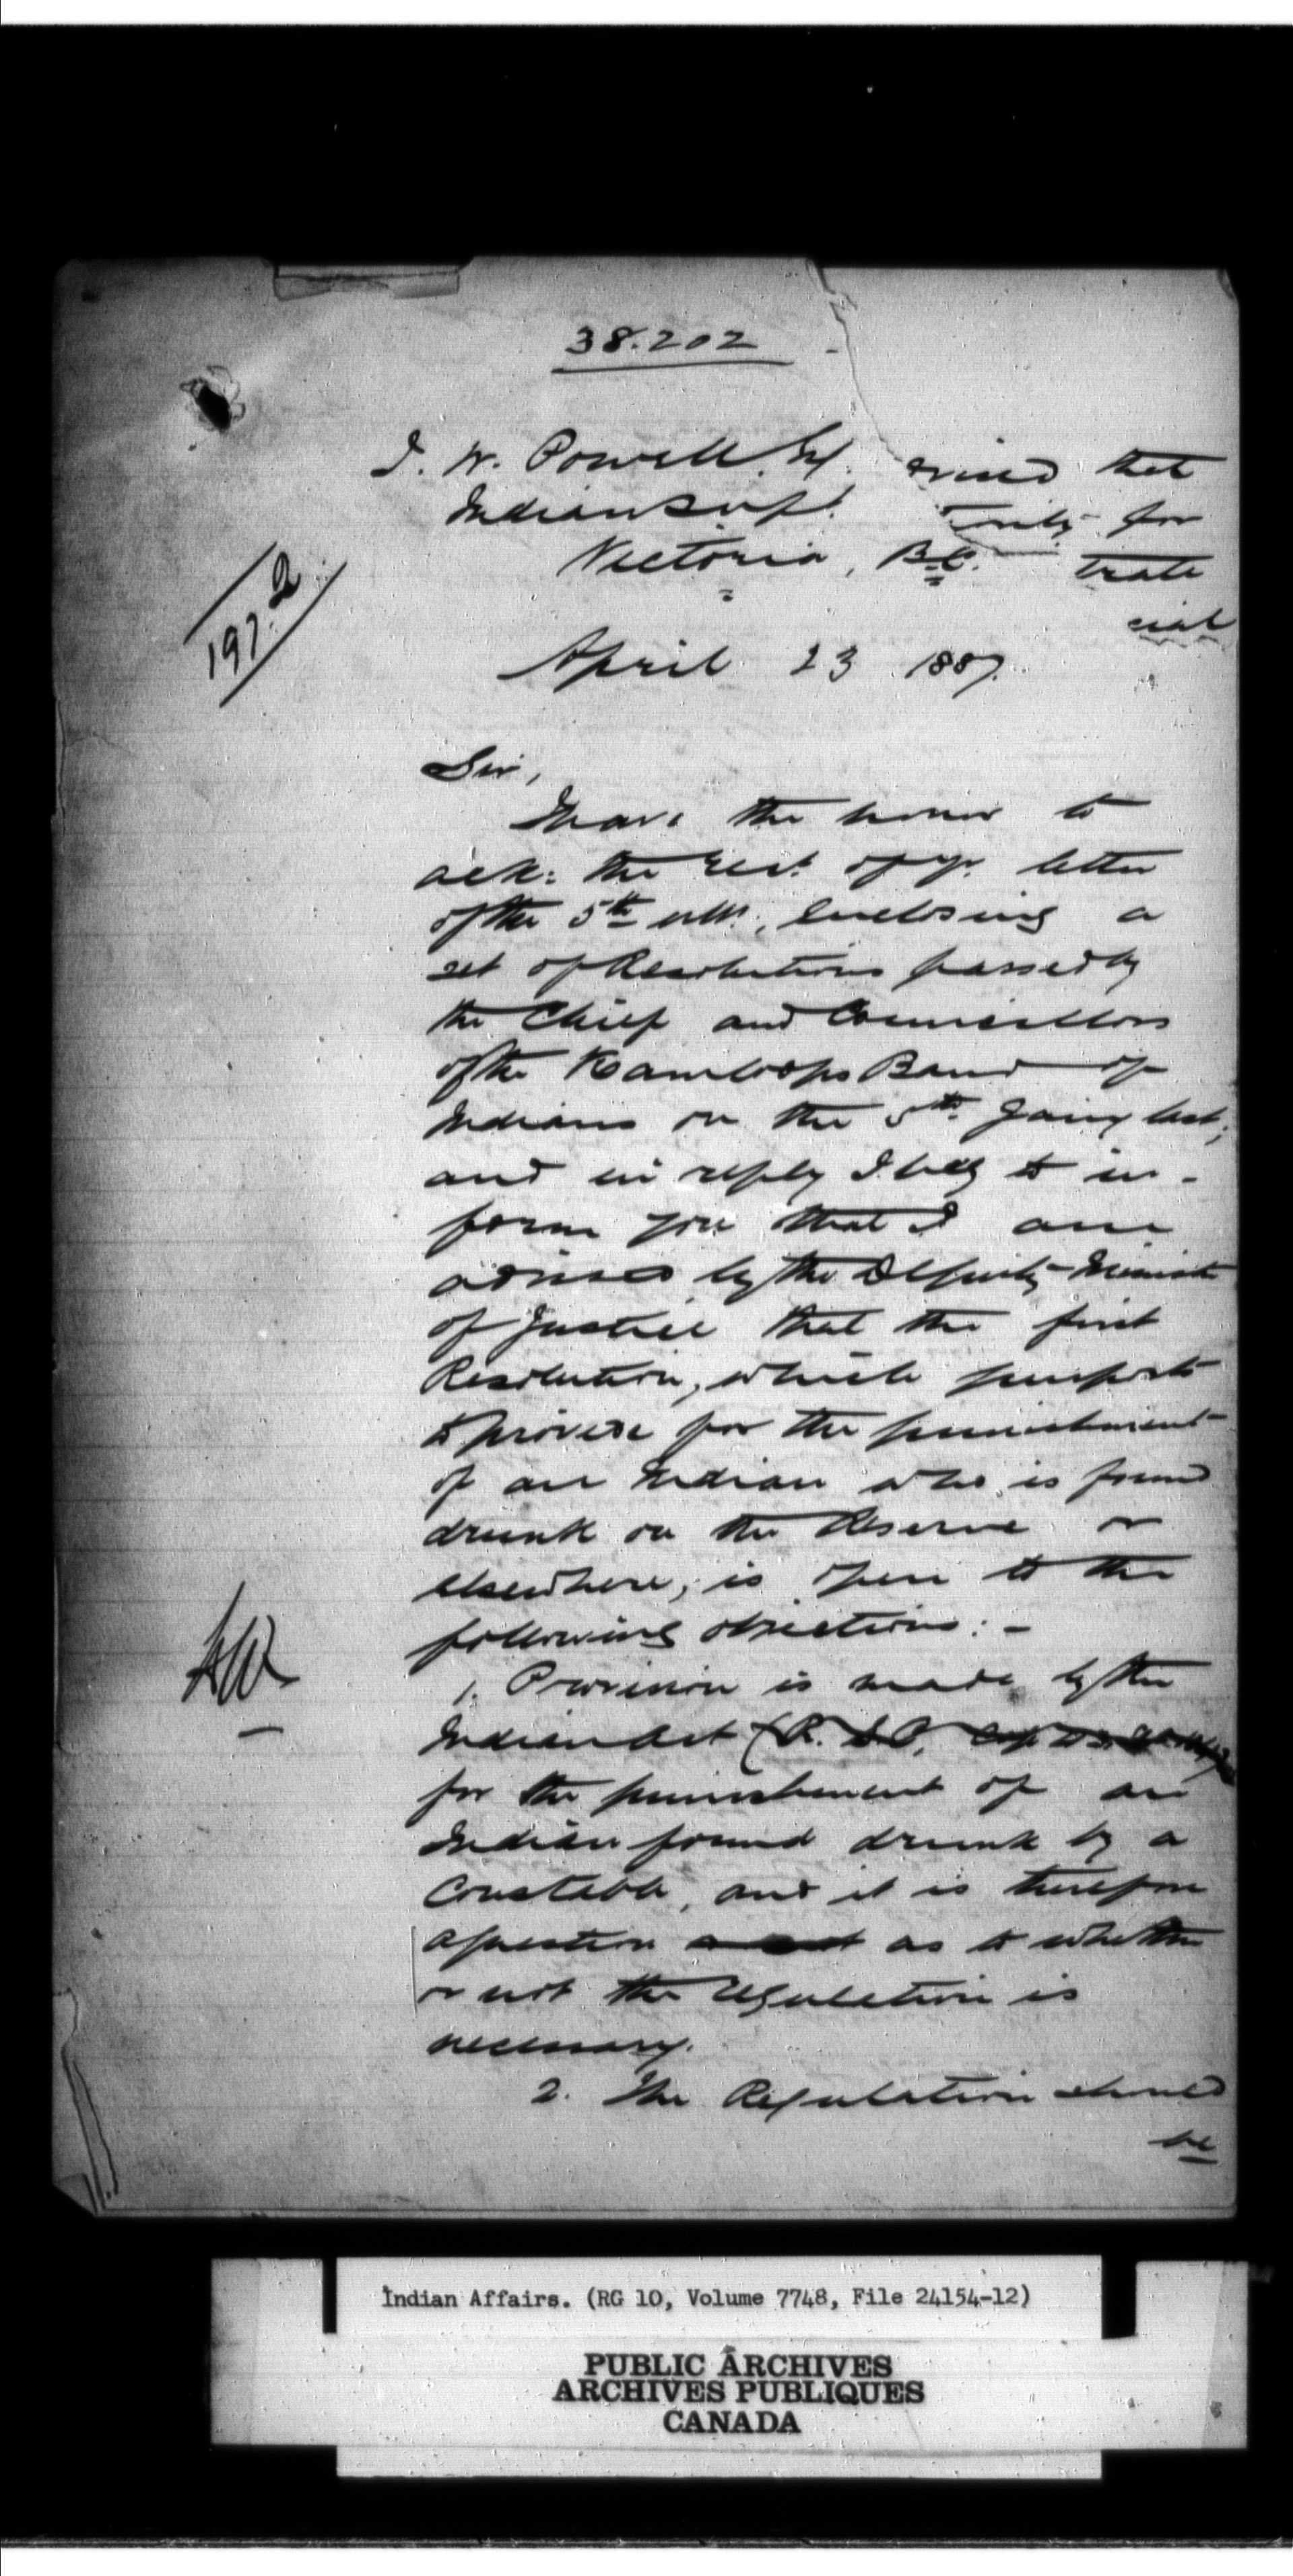 38.202
I. W. Powell, Esq. vised that
Indian Supt. for
Victoria, B.C. trate
cial
197.2
April 23 1887.
Sir,
I have the honor to
ack: the rect. of yr. letter
of the 5th ult., enclosing a
set of Resolutions passed by
the Chief and Councillors
of the Kamloops Band of
Indians on the 5th Jany last;
and in reply I beg to in-
form you that I am
advised by the Deputy Minister
of Justice that the first
Resolution, which purports
to provide for the punishment
of an Indian who is found
drunk on the Reserve or
elsewhere, is open to the
following objections: -
1. Provision is made by the
Indian Act (R.S.C. Cap
for the punishment of an
Indian found drunk by a
Constable, and it is therefore
a question as to whether
or not the regulation is
necessary.
2. The Regulation should
be
Indian Affairs. (RG 10, Volume 7748, File 24154-12)
PUBLIC ARCHIVES
ARCHIVES PUBLIQUES
CANADA